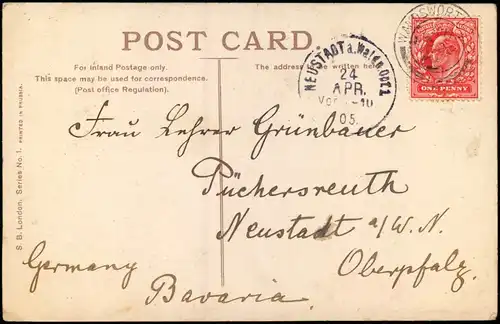 POST CARD
For Inland Postage only.
This space may be used for correspondence.
(Post office Regulation).
The address be written here.
NEUSTADT a. Waldn.
24
APR.
05.
WANDSWORTH
ONE PENNY
S. B. London, Series No. 1. PRINTED IN PRUSSIA.
Frau Lehrer Grünbauer
Püchersreuth
Neustadt a/W. N.
Oberpfalz
Germany
Bavaria